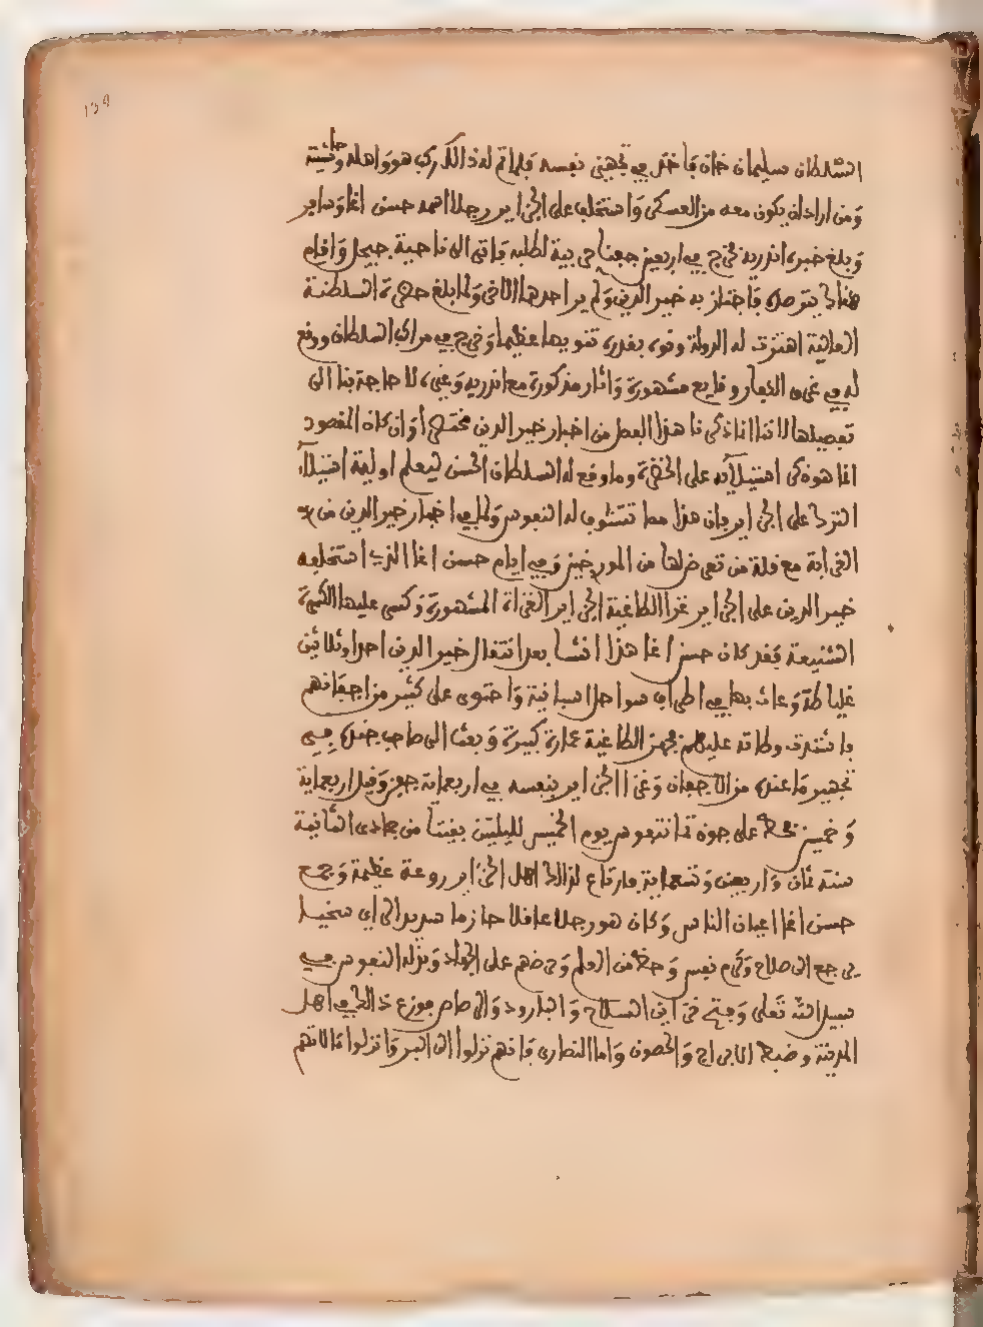 139
السلطان سليمان خان فاخذ في تجهيز نفسه فلما تم له ذالك ركب هو واهله وحاشيته
ومن اراد ان يكون معه من العسكر واستخلف على الجزاير رجلا اسمه حسن اغا وسار
وبلغ خبره اندريه فخرج في اربعين جفنا حربية لطلبه فاتى الى ناحية جيجل واقام
هنالك يترصده فاجتاز به خير الدين ولم ير احدهما الاخر ولما بلغ حضرة السلطنة
العالية اهتزت له الدولة ونوه بقدره تنويها عظيما وخرج في مراكب السلطان ووقع
له في غزو الكفار وقايع مشهورة واثار مذكورة مع اندريه وغيره لا حاجة بنا الى
تفصيلها لاننا انما ذكرنا هذا الفصل من اخبار خير الدين مختصرا وان كان المقصود
انما هو ذكر استيلائه على الحضرة وما وقع له السلطان الحسن ليعلم اولية استيلاء
الترك على الجزاير فان هذا مما تتشوف له النفوس ولما في اخبار خير الدين من
الغرابة مع قلة من تعرض لها من المورخين وفي ايام حسن اغا الذي استخلفه
خير الدين على الجزاير غزا الطاغية الجزاير الغزاة المشهورة وكسر عليها الكسرة
الشنيعة فقد كان حسن اغا هذا انشا بعد انتقال خير الدين احدا وثلاثين
غلياطة وعاث بها في اطراف سواحل اسبانية واحتوى على كثير من اجفانهم
فاشتدت وطاته عليهم فجهز الطاغية عمارة كبيرة وبعث الى صاحب جنوة في
تجهيز ما عنده من الاجفان وغزا الجزاير بنفسه في اربعماية جفن وقيل اربعماية
وخمسين فحط على جون تمانتفوس يوم الخميس لليلتين بقيتا من جمادى الثانية
سنة ثمان واربعين وتسعماية فارتاع لذالك اهل الجزاير روعة عظيمة وجمع
حسن اغا اعيان الناس وكان هو رجلا عاقلا حازما سديد الراي سخيا
يرجع الى صلاح وكرم نفس وحظ من العلم وحرضهم على الجهاد وبذل النفوس في
سبيل الله تعلى وفتح خزاين السلاح والبارود والرصاص فوزع ذالك في اهل
المدينة وضبط الابراج والحصون واما النصارى فانهم نزلوا الى البر وانزلوا الاتهم